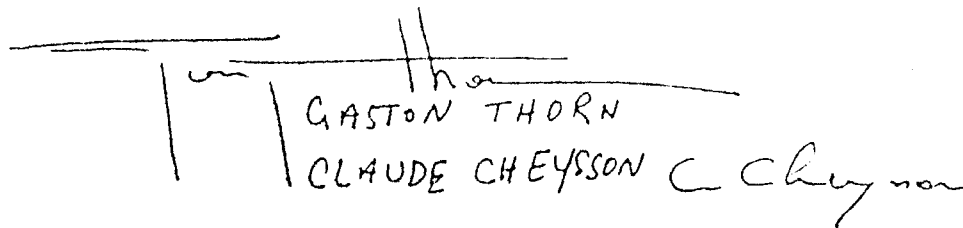 GASTON THORN
CLAUDE CHEYSSON C Cheysson